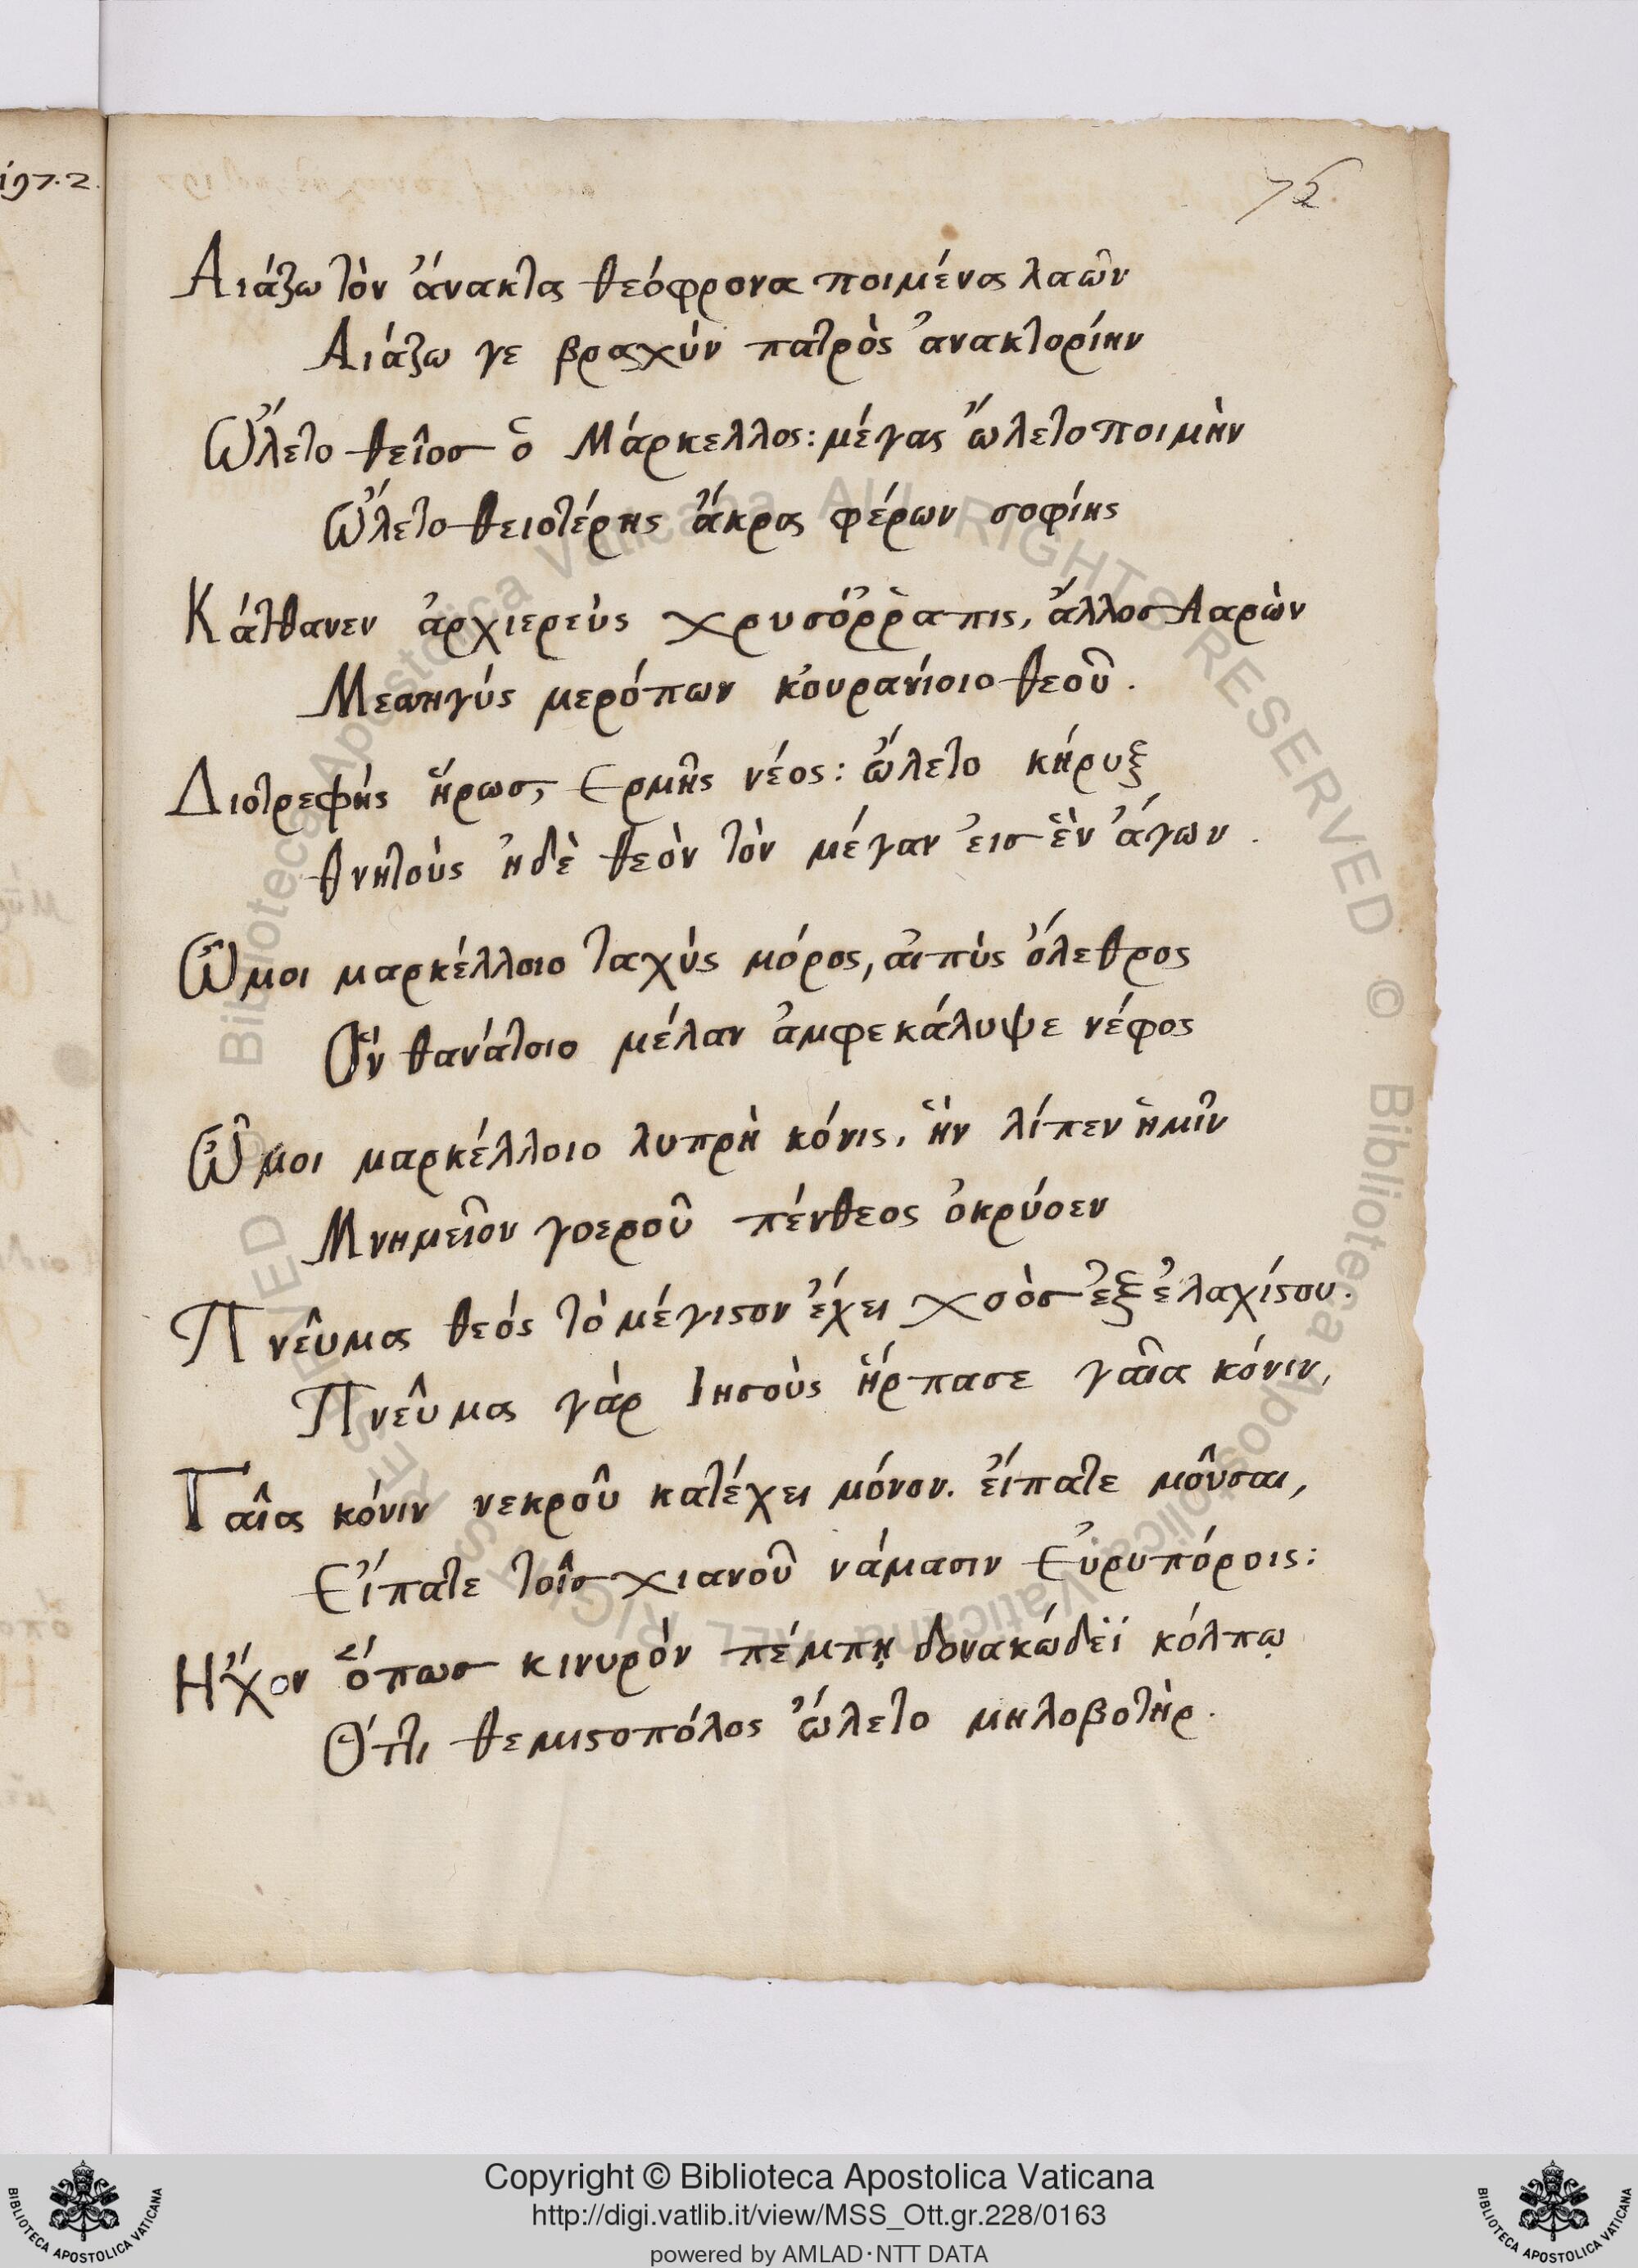 197.2.
76.
Αιάζω τὸν ἄνακτα θεόφρονα ποιμένα λαῶν
Αιάζω γε βραχὺν πατρὸς ἀνακτορίην
Ὤλετο θεῖος ὁ Μάρκελλος: μέγας ὤλετο ποιμὴν
Ὤλετο θειοτέρης ἄκρα φέρων σοφίης
Κάτθανεν ἀρχιερεὺς χρυσόῤῥαπις, ἄλλος Ααρὼν
Μεσηγύς μερόπων κ'ουρανίοιο θεοῦ.
Διοτρεφής ἥρως, Ερμῆς νέος: ὤλετο κήρυξ
θνητοὺς ἠδὲ θεὸν τὸν μέγαν εἰς ἓν ἄγων.
Ὤμοι μαρκέλλοιο ταχὺς μόρος, αἰπὺς ὄλεθρος
Ὃν θανάτοιο μέλαν ἀμφεκάλυψε νέφος
Ὤμοι μαρκέλλοιο λυπρὴ κόνις, ἣν λίπεν ἡμῖν
Μνημεῖον γοεροῦ πένθεος ὀκρύοεν
Πνεῦμα θεός τὸ μέγιστον ἔχει χοὸς ἐξ ἐλαχίστου.
Πνεῦμα γὰρ Ιησοὺς ἥρπασε γαῖα κόνιν,
Γαῖα κόνιν νεκροῦ κατέχει μόνον. εἴπατε μοῦσαι,
Εἴπατε τοῖς χιανοῦ νάμασιν Εὐρυπόροις:
Ηὖχον ὅπως κινυρὸν πέμπῃ δονακώδεϊ κόλπῳ
Ὅττι θεμιστοπόλος ὤλετο μηλοβοτὴρ.
Copyright © Biblioteca Apostolica Vaticana
http://digi.vatlib.it/view/MSS_Ott.gr.228/0163
powered by AMLAD·NTT DATA
BIBLIOTECA APOSTOLICA VATICANA
BIBLIOTECA APOSTOLICA VATICANA